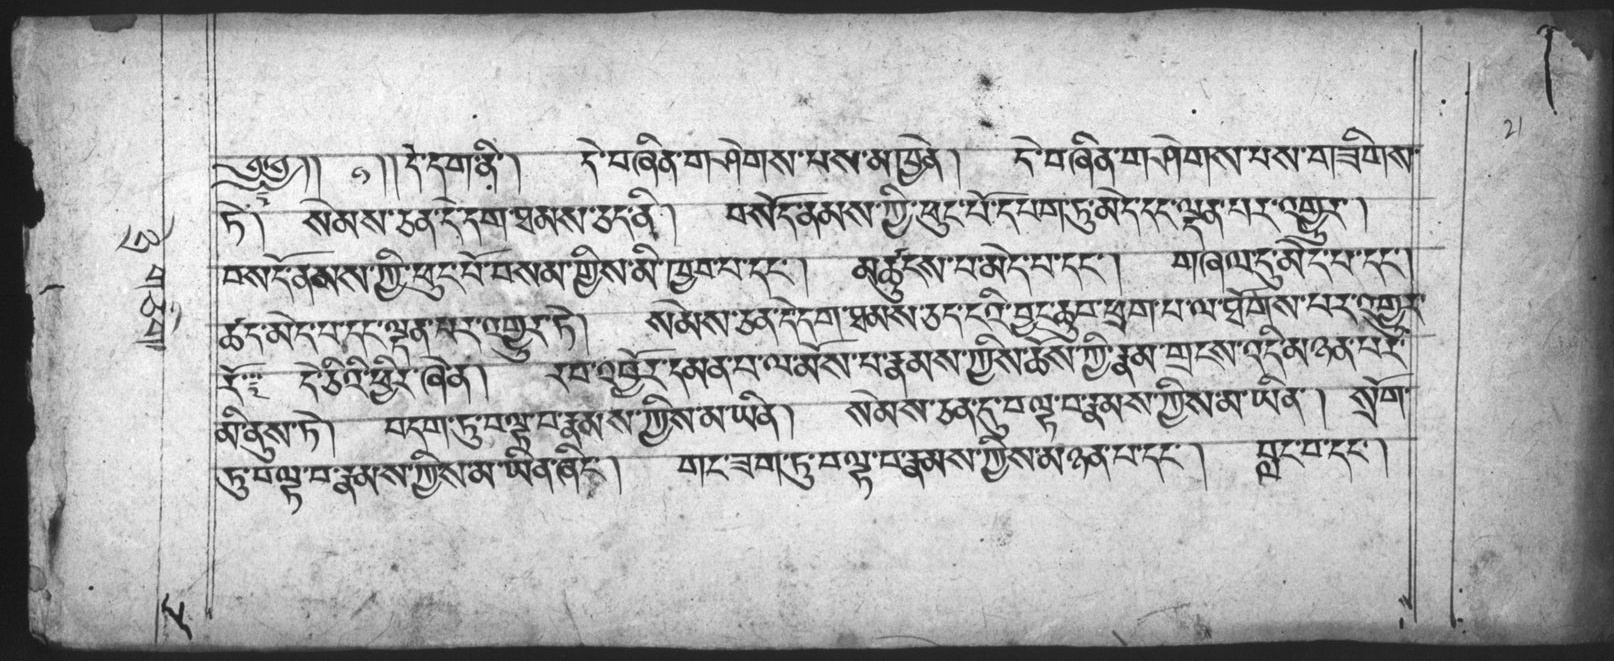 ༄༅།། ༡ །།དེ་དག་ནི། དེ་བཞིན་གཤེགས་པས་མཁྱེན། དེ་བཞིན་གཤེགས་པས་གཟིགས་
ཏེ། སེམས་ཅན་དེ་དག་ཐམས་ཅད་ནི། བསོད་ནམས་ཀྱི་ཕུང་པོ་དཔག་ཏུ་མེད་དང་ལྡན་པར་འགྱུར།
བསོད་ནམས་ཀྱི་ཕུང་པོ་བསམ་གྱིས་མི་ཁྱབ་པ་དང་། མཚུངས་པ་མེད་པ་དང་། གཞལ་དུ་མེད་པ་དང་།
ཚད་མེད་པ་དང་ལྡན་པར་འགྱུར་ཏེ། སེམས་ཅན་དེ་དག་ཐམས་ཅད་ངའི་བྱང་ཆུབ་ཕྲག་པ་ལ་ཐོགས་པར་འགྱུར་
རོ༔ དེ་ཅིའི་ཕྱིར་ཞེ་ན། རབ་འབྱོར་དམན་པ་ལ་མོས་པ་རྣམས་ཀྱིས་ཆོས་ཀྱི་རྣམ་གྲངས་འདི་མཉན་པར་
མི་ནུས་ཏེ། བདག་ཏུ་བལྟ་བ་རྣམས་ཀྱིས་མ་ཡིན། སེམས་ཅན་དུ་བལྟ་བ་རྣམས་ཀྱིས་མ་ཡིན། སྲོག་
ཏུ་བལྟ་བ་རྣམས་ཀྱིས་མ་ཡིན་ཞིང་། གང་ཟག་ཏུ་བལྟ་བ་རྣམས་ཀྱིས་མཉན་པ་དང་། བླང་བ་དང་།
21